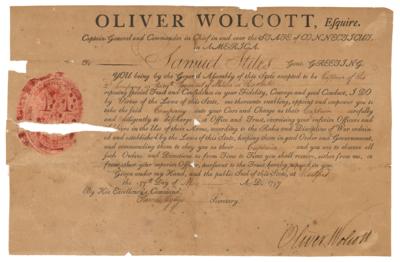 OLIVER WOLCOTT, Esquire.
Captain-General and Commander in Chief in and over the STATE of CONNECTICUT,
in AMERICA.
To Samuel Stiles Gent. GREETING.
YOU being by the General Assembly of this State accepted to be Captain of the
Company in the Regiment of Militia in said State
reposing special Trust and Confidence in your Fidelity, Courage and good Conduct, I DO
by Virtue of the Laws of this State, me thereunto enabling, appoint and empower you to
take the said Company into your Care and Charge as their Captain carefully
and diligently to discharge Office and Trust, exercising your inferior Officers and
Soldiers in the Use of their Arms, according to the Rules and Discipline of War ordained
and established by the Laws of this State, keeping them in good Order and Government,
and commanding them to obey you as their Captain and you are to observe all
such Orders and Directions as from Time to Time you shall receive, either from me, or
from other your superior Officer, pursuant to the Trust hereby reposed in you.
Given under my Hand, and the public Seal of this State, at Hartford
the 17th Day of May A.D. 1797
By His Excellency's Command,
Secretary.
Oliver Wolcott